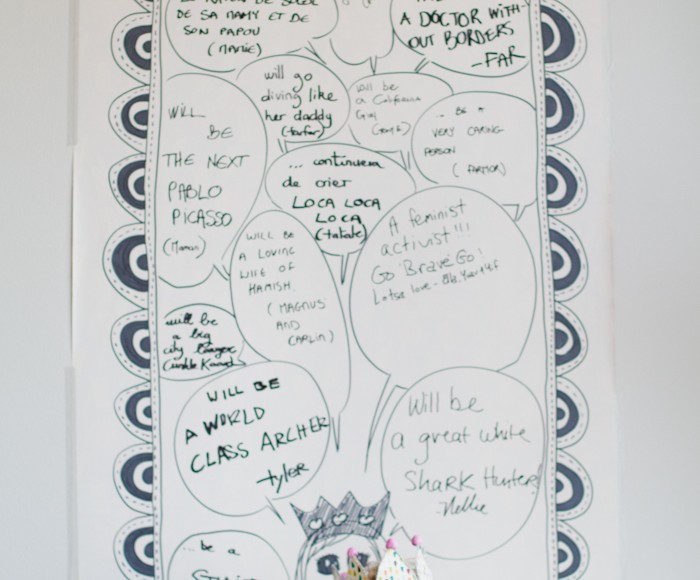 DE SA MAMY ET DE
SON PAPOU
(MAMIE)
A DOCTOR WITH-
OUT BORDERS
-FAR
will go
diving like
her daddy
(farfar)
will be
a California
Girl
WILL
BE
THE NEXT
PABLO
PICASSO
(Maman)
... BE A
VERY CARING
PERSON
(FARMOR)
... continuera
de crier
LOCA LOCA
LOCA
(tatate)
A feminist
activist!!!
Go Brave Go!
Lotsa love -
WILL BE
A LOVING
WIFE OF
HAMISH.
(MAGNUS
AND
CARLIN)
will be
a big
city lawyer
(uncle
WILL BE
A WORLD
CLASS ARCHER
-tyler
Will be
a great white
Shark Hunter!
-Nellie
... be a